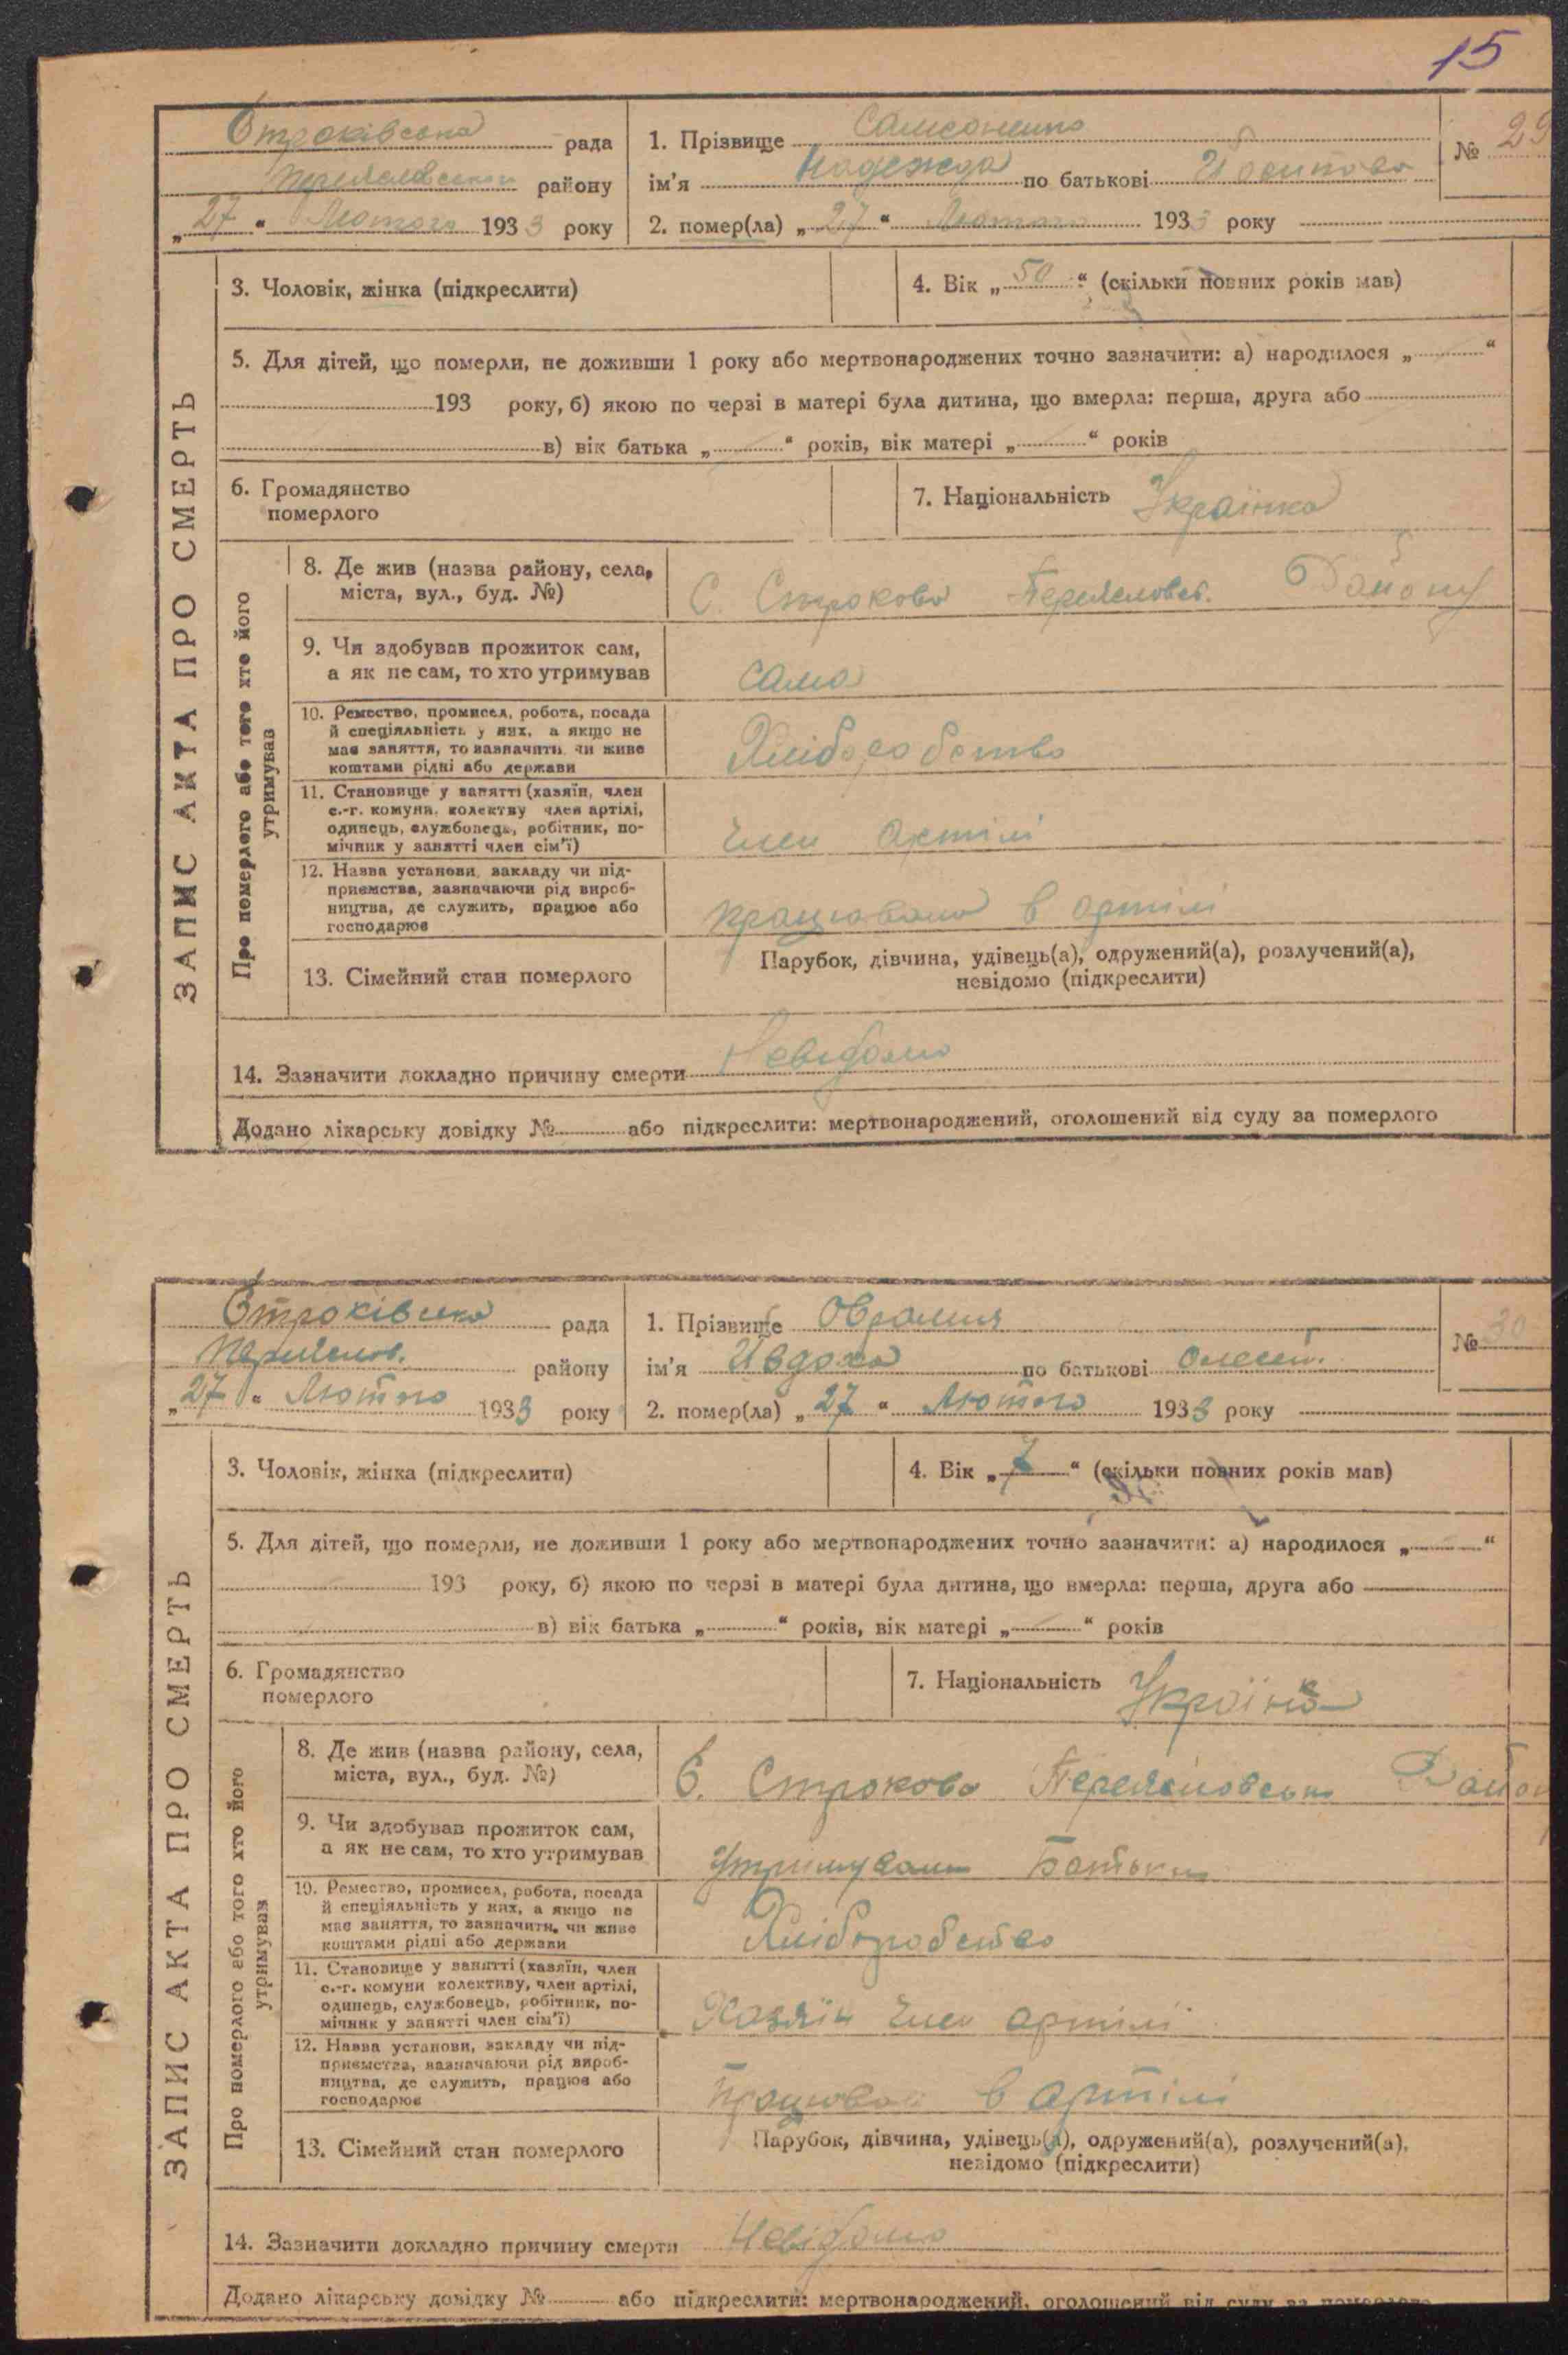 15
ЗАПИС АКТА ПРО СМЕРТЬ
Строківська рада
Переяславський району
„27“ Лютого 1933 року
1. Прізвище Самсоненко
ім'я Надежда по батькові
№ 29
2. помер(ла) „27“ Лютого 1933 року
3. Чоловік, жінка (підкреслити)
4. Вік „50“ (скільки повних років мав)
5. Для дітей, що померли, не доживши 1 року або мертвонароджених точно зазначити: а) народилося „ “
193 року, б) якою по черзі в матері була дитина, що вмерла: перша, друга або
в) вік батька „ “ років, вік матері „ “ років
6. Громадянство
померлого
7. Національність Українка
Про померлого або того хто його
утримував
8. Де жив (назва району, села,
міста, вул., буд. №)
С. Строкова Переяславс. Району
9. Чи здобував прожиток сам,
а як не сам, то хто утримував
Сама
10. Ремество, промисел, робота, посада
й спеціяльність у них, а якщо не
має заняття, то зазначити чи живе
коштами рідні або держави
Хліборобство
11. Становище у занятті (хазяїн, член
с.-г. комуни, колективу член артілі,
одинець, службовець, робітник, по-
мічник у занятті член сім'ї)
Член Артілі
12. Назва установи, закладу чи під-
приємства, зазначаючи рід вироб-
ництва, де служить, працює або
господарює
працювала в артілі
13. Сімейний стан померлого
Парубок, дівчина, удівець(а), одружений(а), розлучений(а),
невідомо (підкреслити)
14. Зазначити докладно причину смерти Невідомо
Додано лікарську довідку № або підкреслити: мертвонароджений, оголошений від суду за померлого
ЗАПИС АКТА ПРО СМЕРТЬ
Строківська рада
Переяслов. району
„27“ Лютого 1933 року
1. Прізвище
ім'я Івдоха по батькові Олексії.
№ 30
2. помер(ла) „27“ Лютого 1933 року
3. Чоловік, жінка (підкреслити)
4. Вік „7“ (скільки повних років мав)
5. Для дітей, що померли, не доживши 1 року або мертвонароджених точно зазначити: а) народилося „ “
193 року, б) якою по черзі в матері була дитина, що вмерла: перша, друга або
в) вік батька „ “ років, вік матері „ “ років
6. Громадянство
померлого
7. Національність Українка
Про померлого або того хто його
утримував
8. Де жив (назва району, села,
міста, вул., буд. №)
С. Строкова Переяславсько Район
9. Чи здобував прожиток сам,
а як не сам, то хто утримував
Утримували Батьки
10. Ремество, промисел, робота, посада
й спеціяльність у них, а якщо не
має заняття, то зазначити, чи живе
коштами рідні або держави
Хліборобство
11. Становище у занятті (хазяїн, член
с.-г. комуни колективу, член артілі,
одинець, службовець, робітник, по-
мічник у занятті член сім'ї)
Хазяїн Член артілі
12. Назва установи, закладу чи під-
приємства, зазначаючи рід вироб-
ництва, де служить, працює або
господарює
Працював в артілі
13. Сімейний стан померлого
Парубок, дівчина, удівець(а), одружений(а), розлучений(а),
невідомо (підкреслити)
14. Зазначити докладно причину смерти Невідомо
Додано лікарську довідку № або підкреслити: мертвонароджений, оголошений від суду за померлого